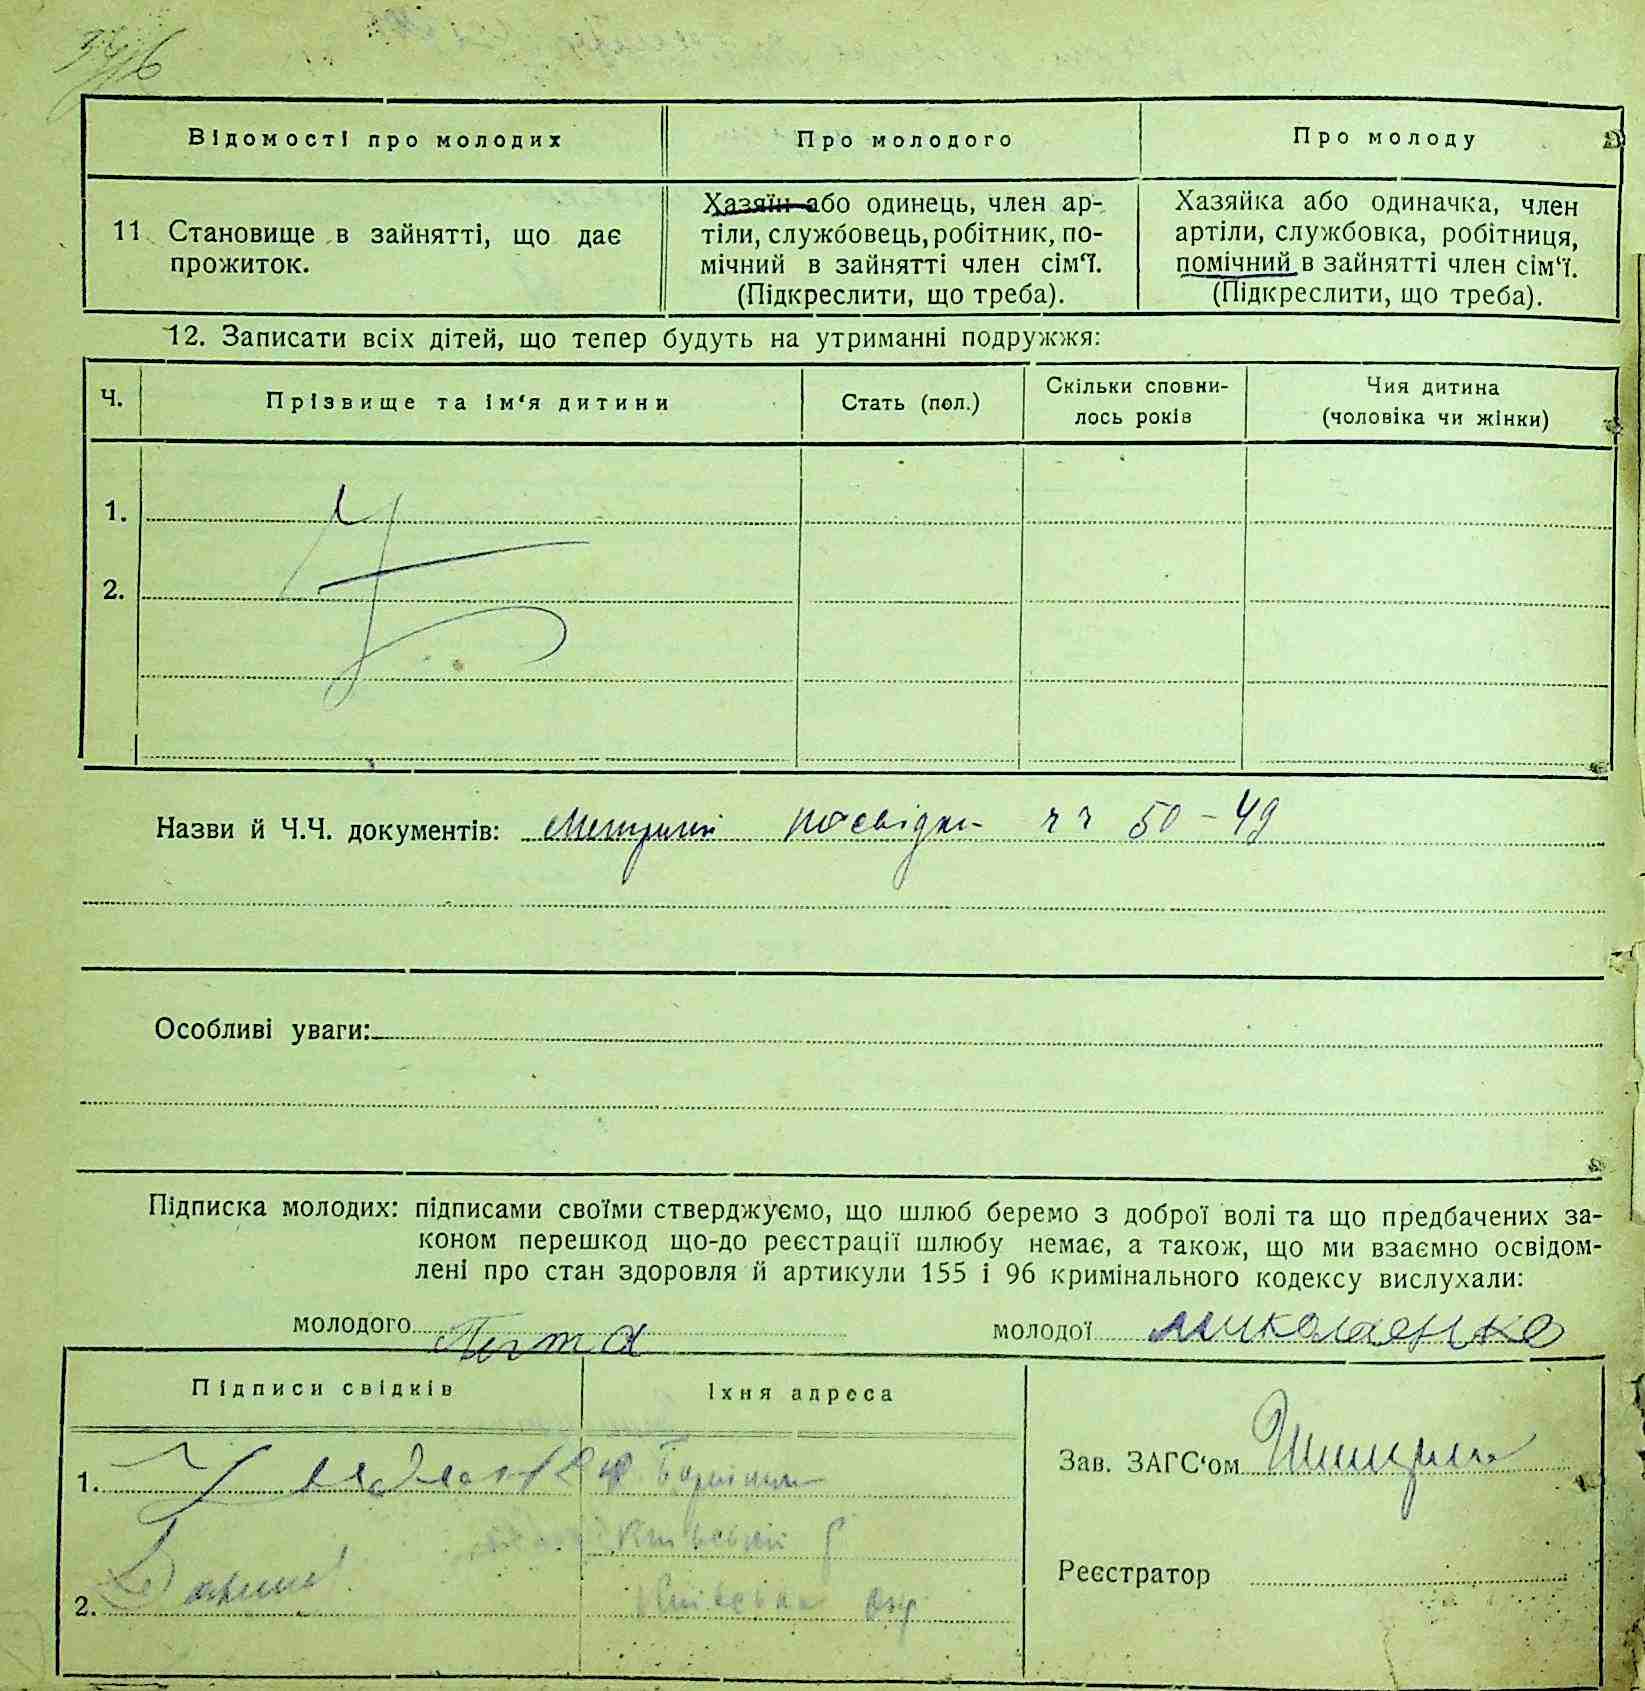 Відомості про молодих
Про молодого
Про молоду
11. Становище в зайнятті, що дає
прожиток.
Хазяїн або одинець, член ар-
тіли, службовець, робітник, по-
мічний в зайнятті член сім'ї.
(Підкреслити, що треба).
Хазяйка або одиначка, член
артіли, службовка, робітниця,
помічний в зайнятті член сім'ї.
(Підкреслити, що треба).
12. Записати всіх дітей, що тепер будуть на утриманні подружжя:
Ч.
Прізвище та ім'я дитини
Стать (пол.)
Скільки сповни-
лось років
Чия дитина
(чоловіка чи жінки)
1.
2.
Назви й Ч.Ч. документів: Метричні посвідки чч 50-49
Особливі уваги:
Підписка молодих: підписами своїми стверджуємо, що шлюб беремо з доброї волі та що предбачених за-
коном перешкод що-до реєстрації шлюбу немає, а також, що ми взаємно освідом-
лені про стан здоровля й артикули 155 і 96 кримінального кодексу вислухали:
молодого
молодої Миколаенко
Підписи свідків
Їхня адреса
1.
Київськ
2.
Київськ окр
Зав. ЗАГС'ом
Реєстратор